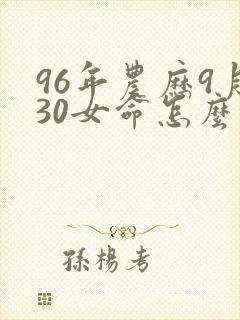 96年農曆9月
30女命怎麼
孫楊考